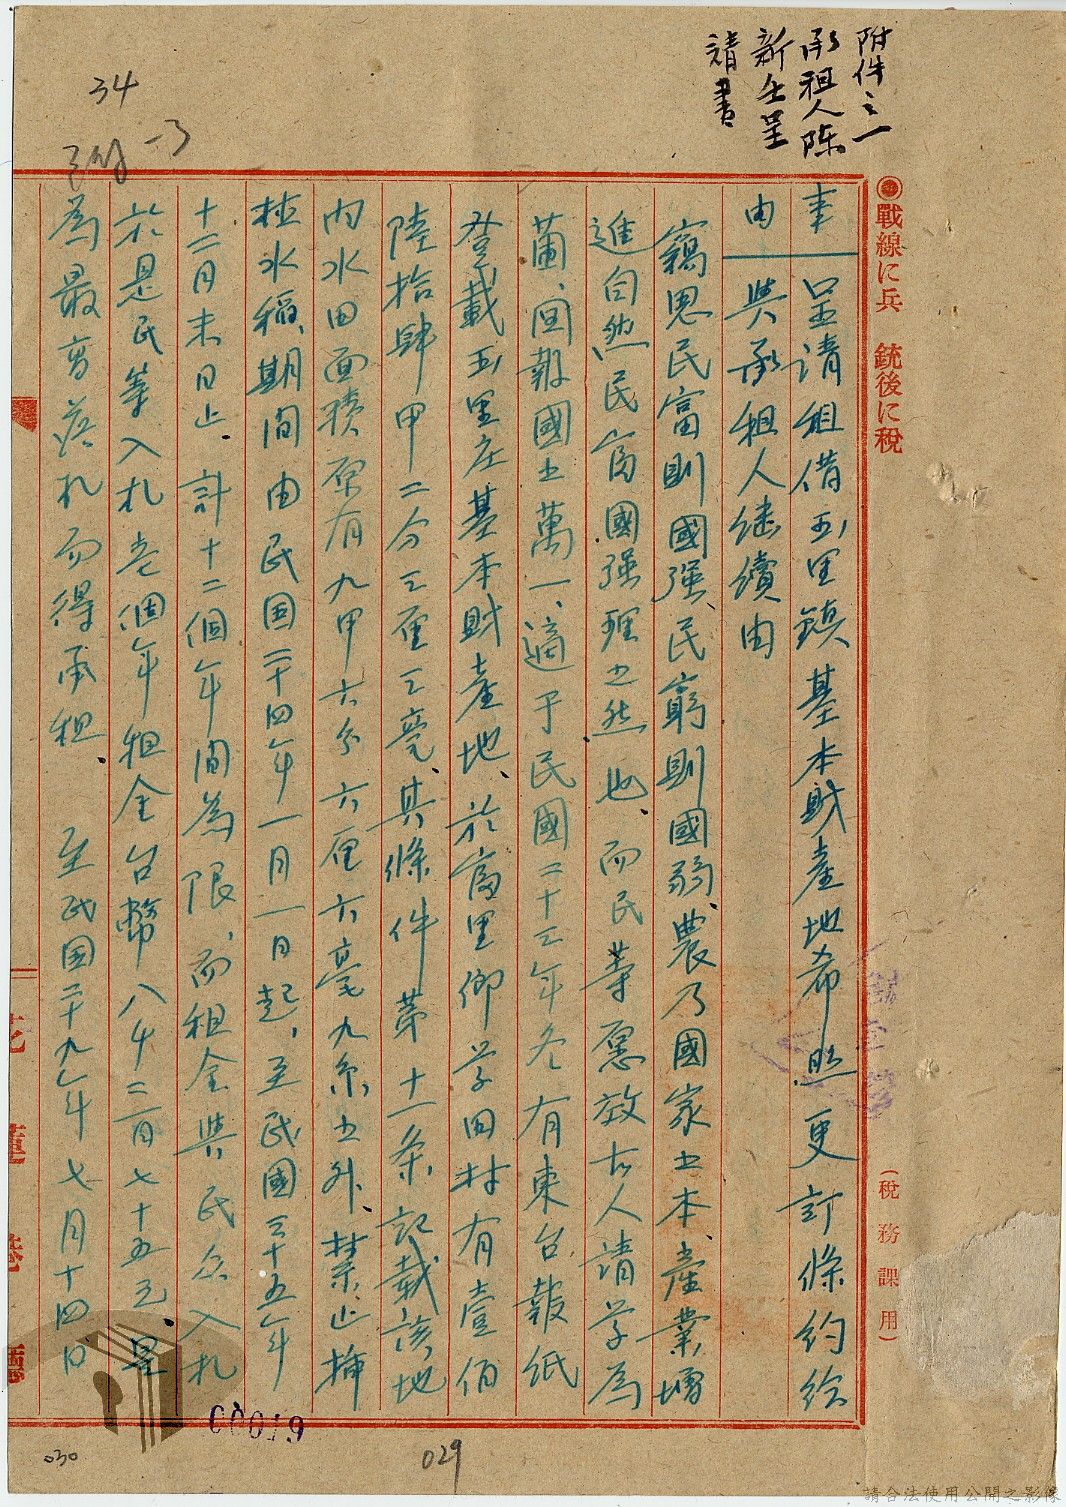 附件之一
承租人陈
新壬呈
請書
34
◉戰線に兵 銃後に稅
(稅務課用)
事
由
呈請租借玉里鎮基本財產地希照更訂條約給
與承租人继續由
竊思民富則國强、民窮則國弱、農乃國家之本、產業增
進自然民富國强理之然也、而民等愿效古人請学為
圃、回報國之萬一、適于民國二十三年冬有東台報紙
登載玉里庄基本財產地、於富里鄉学田村有壹佰
陸拾肆甲二分三厘三毫、其條件第十一条記載該地
內水田面積原有九甲六分六厘六毫九糸之外、禁止揷
植水稻、期間由民国二十四年一月一日起、至民國三十五年
十二月末日止、計十二個年間為限、而租金與民众入札
於是民等入札壱個年租金台幣八千二百七十五元、是
為最高落札而得承租、 至民国二十九年七月十四日
花蓮港廳
00019
029
030
請合法使用公開之影像